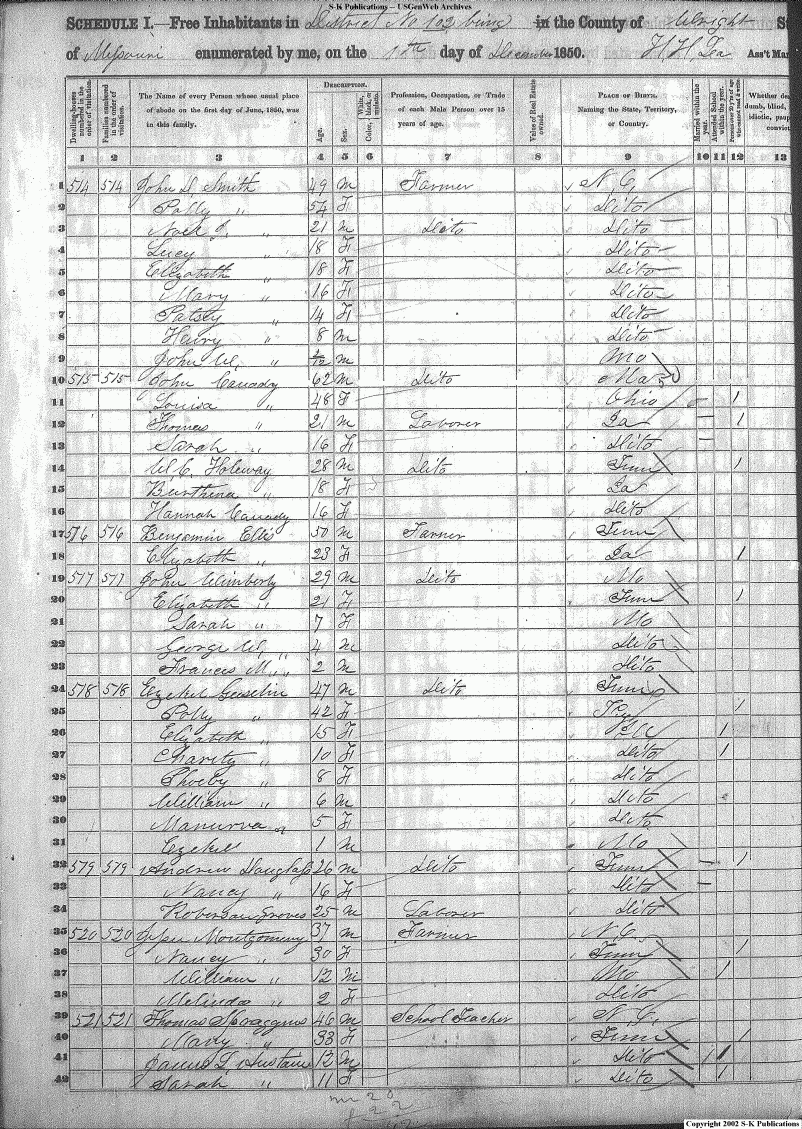 S-K Publications – USGenWeb Archives
SCHEDULE I.—Free Inhabitants in District No 102 being in the County of Wright
of Missouri enumerated by me, on the day of December 1850. Ass't Mar
DESCRIPTION.
Dwelling-houses numbered in the order of visitation. Families numbered in the order of visitation. The Name of every Person whose usual place of abode on the first day of June, 1850, was in this family. Age. Sex. Color, White, black, or mulatto. Profession, Occupation, or Trade of each Male Person over 15 years of age. Value of Real Estate owned. PLACE OF BIRTH. Naming the State, Territory, or Country. Married within the year. Attended School within the year. Persons over 20 y'rs of age who cannot read & write. Whether de dumb, blind, idiotic, paup convict
1 2 3 4 5 6 7 8 9 10 11 12 13
1 514 514 John S Smith 49 M Farmer N.C.
2 Polly " 54 F Dito
3 " 21 M Dito Dito
4 Lucy " 18 F Dito
5 Elizabeth " 18 F Dito
6 Mary " 16 F Dito
7 Patsey " 14 F Dito
8 Henry " 8 M Dito
9 John W. " M Mo
10 515 515 John Canady 62 M Dito
11 Louisa " 48 F Ohio 1
12 Thomas " 21 M Laborer Ia 1
13 Sarah " 16 F Dito
14 W.C. Holeway 28 M Dito Tenn 1
15 Burthena " 18 F Ia
16 Hannah Canady 16 F Dito
17 516 516 Benjamin Ellis 50 M Farmer Tenn
18 Elizabeth " 23 F Ia 1
19 517 517 John Wimberly 29 M Dito Mo
20 Elizabeth " 21 F Tenn 1
21 Sarah " 7 F Mo
22 George W. " 4 M Dito
23 Frances M. " 2 M Dito
24 518 518 Ezekel 47 M Dito Tenn
25 Polly " 42 F Ky 1
26 Elizabeth " 15 F Ill 1
27 Charity " 10 F Dito 1
28 Phoeby " 8 F Dito
29 William " 6 M Dito
30 Manurva " 5 F Dito
31 Ezekel 1 M Mo
32 579 579 Andrew Douglass 26 M Dito Tenn 1
33 Nancy " 16 F Dito
34 Roberson Groves 25 M Laborer Dito
35 520 520 Montgomery 37 M Farmer N.C.
36 Nancy " 30 F Tenn 1
37 William " 12 M Mo 1
38 Melinda " 2 F Dito
39 521 521 Thomas Spraggins 46 M School Teacher N.C.
40 Mary " 33 F Tenn 1
41 James L. 12 M Dito 1 1
42 Sarah " 11 F Dito 1
Copyright 2002 S-K Publications